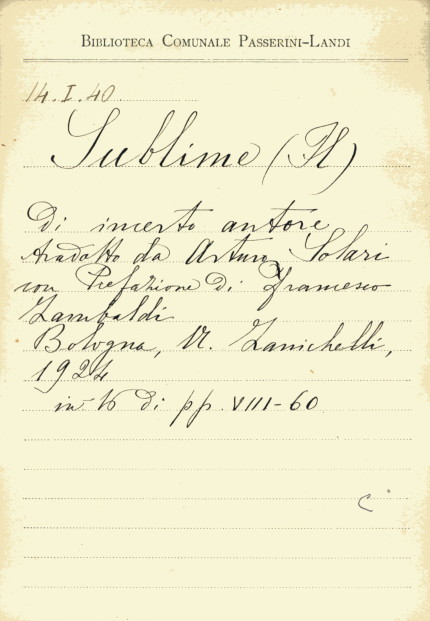 BIBLIOTECA COMUNALE PASSERINI-LANDI
14.I.40
Sublime (Il)
Di incerto autore
tradotto da Arturo Solari
con Prefazione di Francesco
Zambaldi
Bologna, N. Zanichelli,
1924
in 16 di pp. VIII-60
C